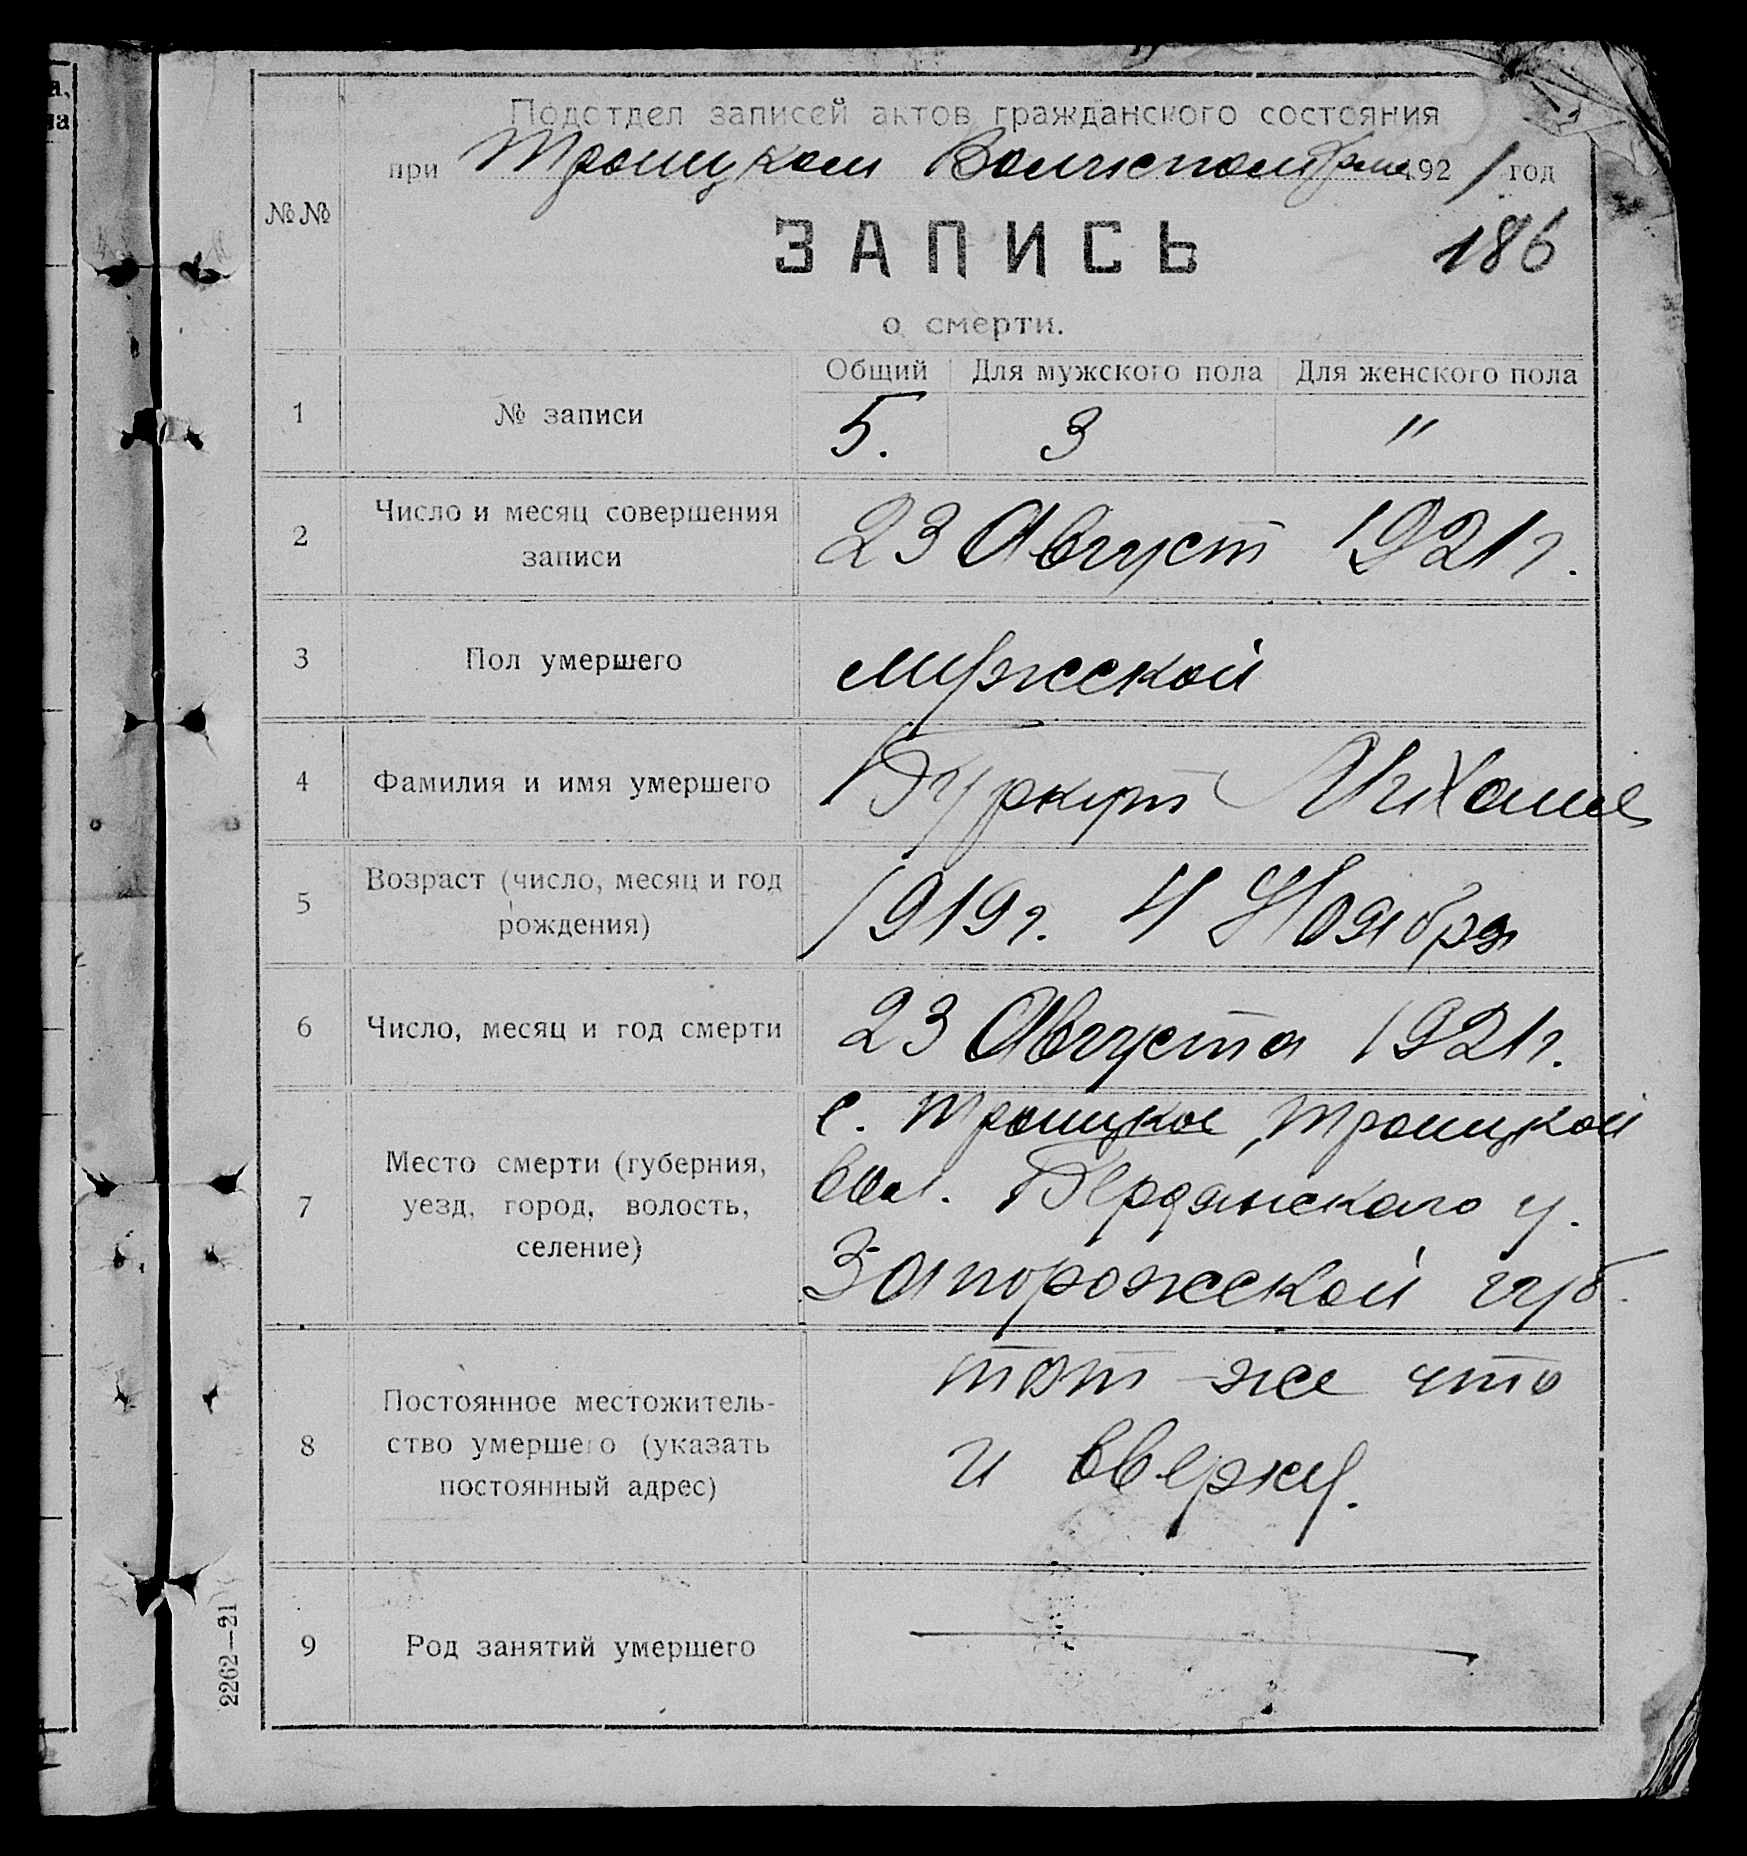 Подотдел записей актов гражданского состояния
при Троицком Волисполкоме 1921 год
№№
186
ЗАПИСЬ
о смерти.
Общий Для мужского пола Для женского пола
1 № записи 5. 3 "
2 Число и месяц совершения
записи
23 Август 1921 г.
3 Пол умершего мужской
4 Фамилия и имя умершего Буркут Михаил
5 Возраст (число, месяц и год
рождения)
1919 г. 4 Ноября
6 Число, месяц и год смерти 23 Августа 1921 г.
7 Место смерти (губерния,
уезд, город, волость,
селение)
с. Троицкое, Троицкой
вол. Бердянского у.
Запорожской губ.
8 Постоянное местожитель-
ство умершего (указать
постоянный адрес)
тот же что
и вверху.
9 Род занятий умершего
2262—21